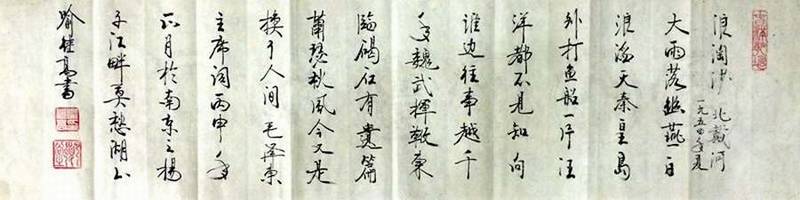 浪淘沙 北戴河
一九五四年夏
大雨落幽燕白
浪滔天秦皇島
外打鱼船一片汪
洋都不見知向
谁边往事越千
年魏武揮鞭東
臨碣石有遺篇
蕭瑟秋風今又是
換了人间毛泽東
主席词丙申年
正月於南京之揚
子江畔莫愁湖上
喻继高書